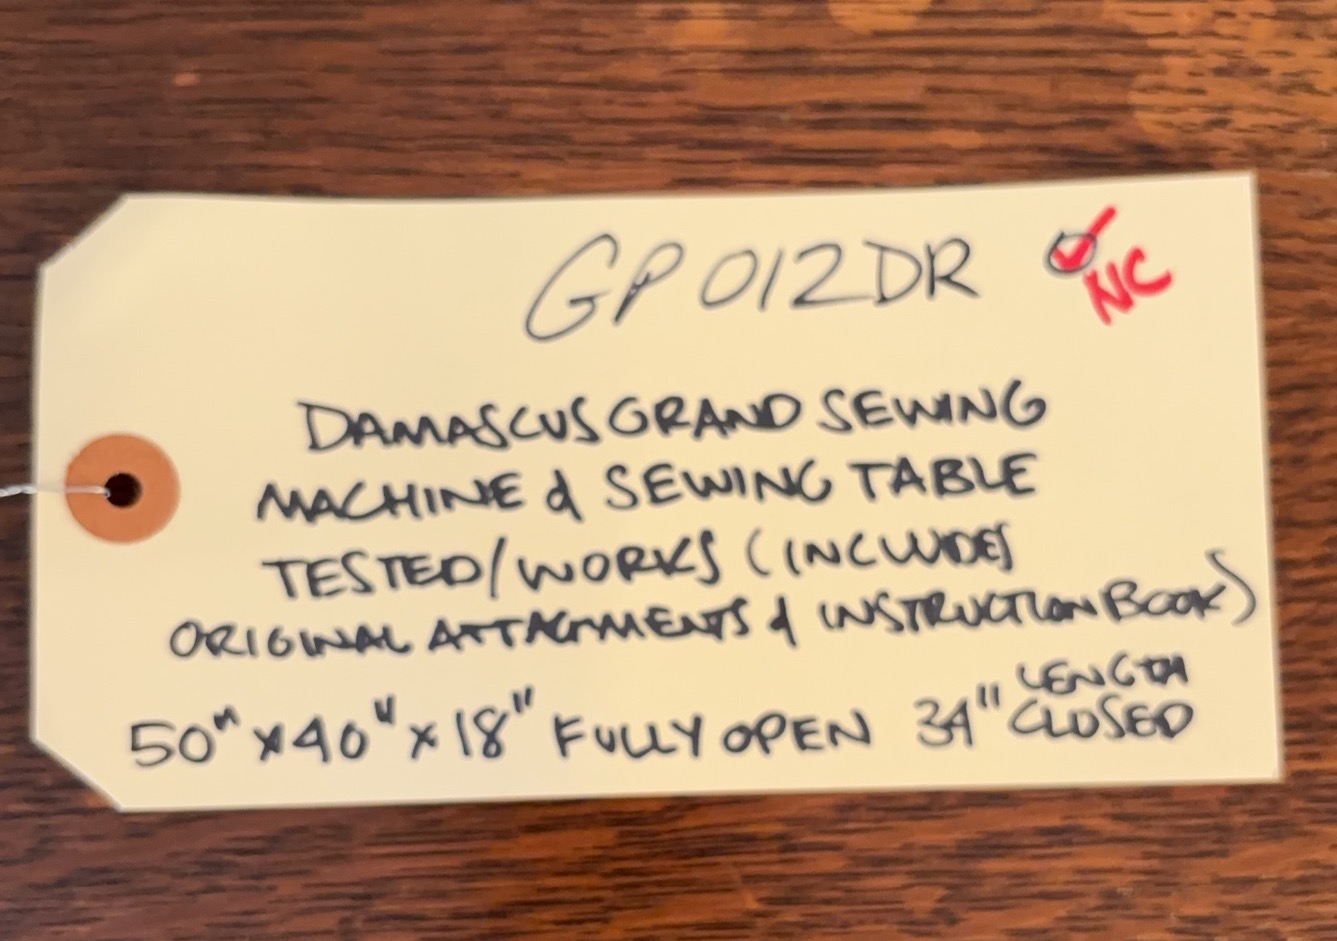 GP 012DR
NC
DAMASCUS GRAND SEWING
MACHINE & SEWING TABLE
TESTED/WORKS (INCLUDES
ORIGINAL ATTACHMENTS & INSTRUCTION BOOK)
50" x 40" x 18" FULLY OPEN 34" LENGTH CLOSED